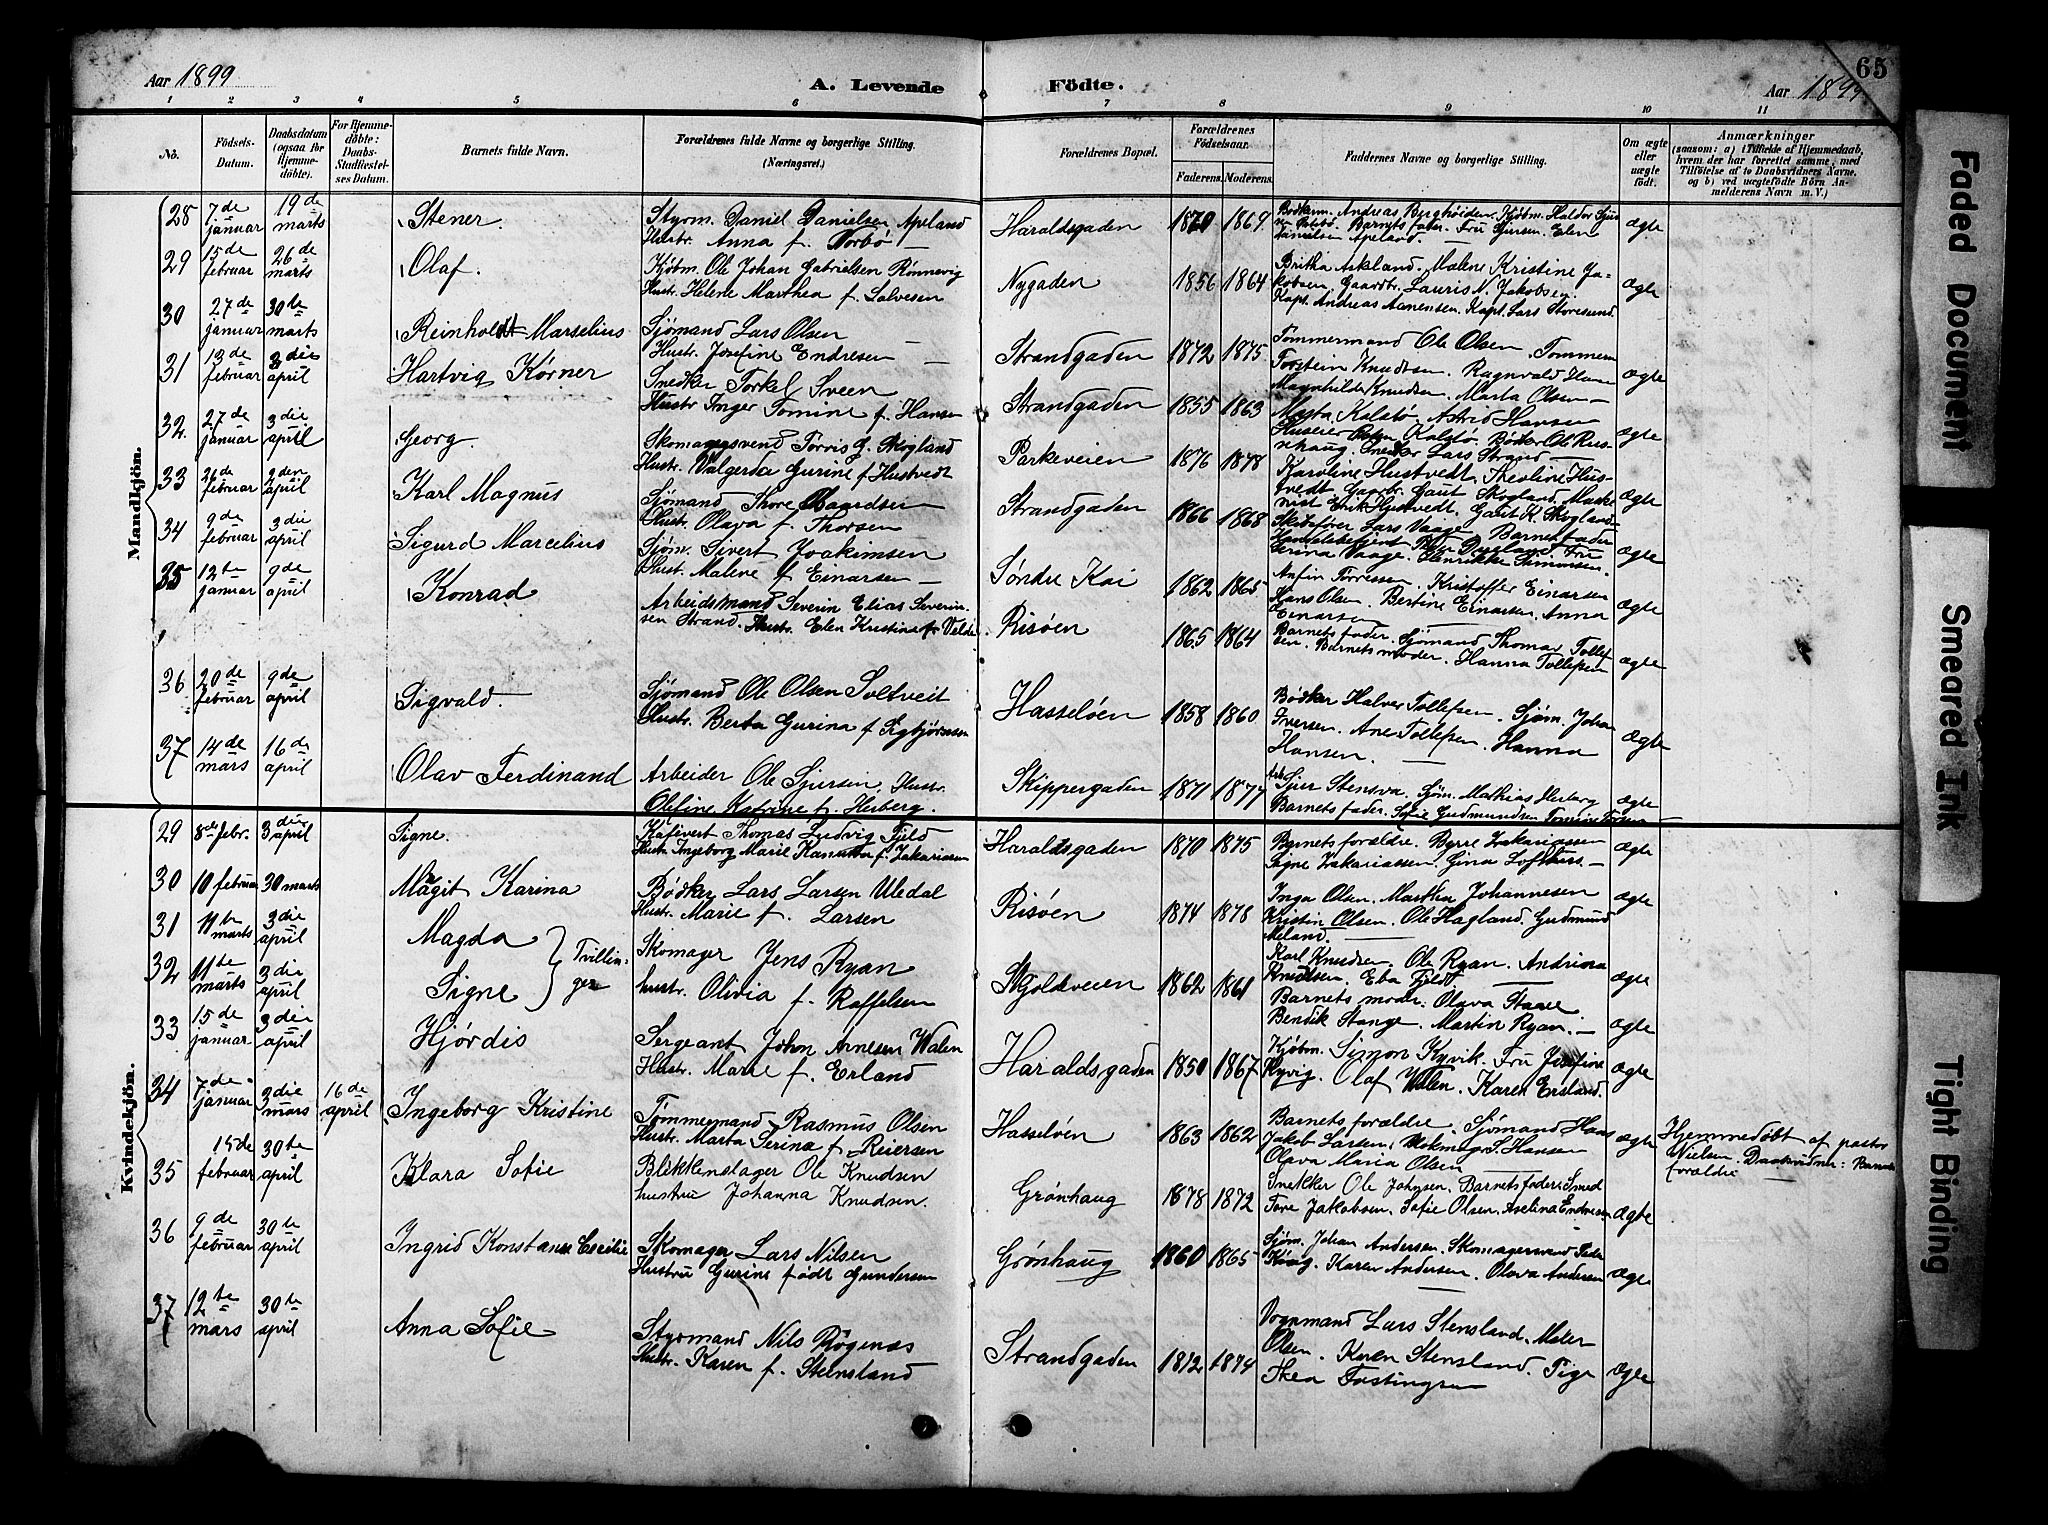 Aar 1899
A. Levende
Födte.
Aar 1899
65
1 2 3 4 5 6 7 8 9 10 11
No.
Födsels-
Datum.
Daabsdatum
(ogsaa for
Hjemme-
döbte).
For Hjemme-
döbte:
Daabs-
Stadfæstel-
ses Datum.
Barnets fulde Navn.
Forældrenes fulde Navne og borgerlige Stilling.
(Næringsvei.)
Forældrenes Bopæl.
Forældrenes
Födselsaar.
Faderens. Moderens.
Faddernes Navne og borgerlige Stilling.
Om ægte
eller
uægte
født.
Anmærkninger
(saasom: a) i Tilfælde af Hjemmedaab,
hvem der har forrettet samme, med
Tilföielse af to Daabsvidners Navne,
og b) ved uægtefödte Börn An-
melderens Navn m. V.)
Mandkjön.
28 7de januar 19de marts Stener. Styrm. Daniel Danielsen Apeland
Hustr. Anna f. Torbø
Haraldsgaden 1870 1869. ægte
29 15de februar 26de marts Olaf. Kjøbm. Ole Johan Gabrielsen Rønnevig
Hustr. Helene Marthea f. Salvesen
Nygaden 1856 1864 Britha Askland. Malene Kristine Ja-
kobsen. Gaardbr. Lauris N. Jakobsen.
Kapt. Andreas Aanensen. Kapt. Lars Storesund. ægte
30 27de januar 30te marts Reinholdt Marselius Sjømand Lars Olsen
Hustr. Josefine Endresen
Strandgaden 1872 1875. Tømmermand Ole Olsen. Tømmerm
Torstein Knudsen. Ragnvald Hansen
Magnhilde Knudsen. Marta Olsen ægte
31 13de februar 3die april Hartvig Kørner Snedker Torkel Sveen
Hustr Inger Tomine f. Hansen
Strandgaden 1855 1863 Marta Kalstø. Astrid Hansen
ægte
32. 27de januar 3die april Georg. Skomagersvend Torris G. Skogland
Hustr. Valgerda Gurine f Hustvedt
Parkveien 1876 1878 Karoline Hustvedt. Theoline Hus-
tvedt Gaut Skogland
Erik Hustvedt. Gaut K. Skogland ægte
33 26de februar 2den april Karl Magnus Sjømand Thore Baardsen
Hustr. Olava f. Thorsen
Strandgaden 1866 1868 Skibsfører Lars Vaage. Barnets fader
ægte
34 9de februar 3die april Sigurd Marcelius Sjøm. Sivert Joakimsen
Hust. Malene f Einarsen
Søndre Kai 1862 1865 Anfin Torressen. Kristoffer Einarsen
Hans Olsen. Bertine Einarsen. Anna
Einarsen ægte
35 12te januar 9de april Konrad Arbeidsmand Severin Elias Severin-
sen Strand. Hustr. Elen Kristina f. Velde
Risøen 1865 1864 Barnets fader. Sjømand Thomas Tollef
sen. Barnets moder. Hanna Tollefsen ægte
36 20de februar 9de april Sigvald. Sjømand Ole Olsen Soltveit
Hustr. Berta Gurina f
Hasseløen 1858 1860 Bødker Halver Tollefsen. Sjøm. Johan
Iversen. Ane Tollefsen. Hanna
Hansen. ægte
37 14de mars 16de april Olav Ferdinand Arbeider Ole Sjursen. Hustr.
Olefine Katrine f. Herberg.
Skippergaden 1871 1877 Arb. Sjur Stensva. Sjøm. Mathias Herberg
Barnets fader. Sofie Gudmundsen ægte
Kvindekjön.
29 8de febr. 3die april Signe. Kafévert Thomas Ludvig Fjeld
Hustr. Ingeborg Marie f. Zakariasen
Haraldsgaden 1870 1875 Barnets forældre. Byrre Zakariassen
Signe Zakariassen. Gina Lofthus. ægte
30 10 februar 30 marts Magit Karina Bødker Lars Larsen Uledal
Hustr. Marie f. Larsen
Risøen 1874 1878 Inga Olsen. Martha Johannesen
Kristin Olsen. Ole Hagland. Gudmund
Meland. ægte
31 11te marts 3die april Magda
32 11te marts 3die april Signe
Tvillin-
ger
Skomager Jens Ryan
hustr. Olivia f. Raffelsen
Skjoldeveien 1862 1861 Karl Knudsen. Ole Ryan. Andrina
Knudsen. Eba Fjeld. ægte
Barnets moder. Olava Staae
Bendik Stange. Martin Ryan. ægte
33 15de januar 3die april Hjørdis Sergeant John Arnesen Walen
Hustr. Marie f. Erland
Haraldsgaden 1850 1867 Kjøbm. Simon Kyvik. Fru Josefine
Kyvig. Olaf Walen. Karen Ersland. ægte
34 7de januar 3die mars 16de april Ingeborg Kristine Tømmermand Rasmus Olsen
Hustr. Marta Serina f. Reiersen
Hasseløen 1863 1862 Barnets forældre. Sjømand Hans
Jakob Larsen. S. Hansen
Olava Maria Olsen ægte
Hjemmedøbt af pastor
Nielsen. Daabsvidner: Barnets
forældre
35 15de februar 30te april Klara Sofie Blikkenslager Ole Knudsen
hustru Johanna Knudsen.
Grønhaug 1878 1872 Snekker Ole Johnsen. Barnets fader. Smed
Tore Jakobsen. Sofie Olsen. Aselina Endresen ægte
36 9de februar 30te april Ingrid Konstanse Cecilie Skomager Lars Nilsen
Hustru Gurine født Gundersen
Grønhaug 1860 1865 Sjøm. Johan Andersen. Skomagersvend
Karen Andersen. Olava Andersen ægte
37 12te mars 30te april Anna Sofie Styrmand Nils Røgenas
Hustr. Karen f. Stensland
Strandgaden 1872 1874 Vognmand Lars Stensland. Maler
Olsen. Karen Stensland. Pige
Thea Tostingsen ægte
Faded Document
Smeared Ink
Tight Binding